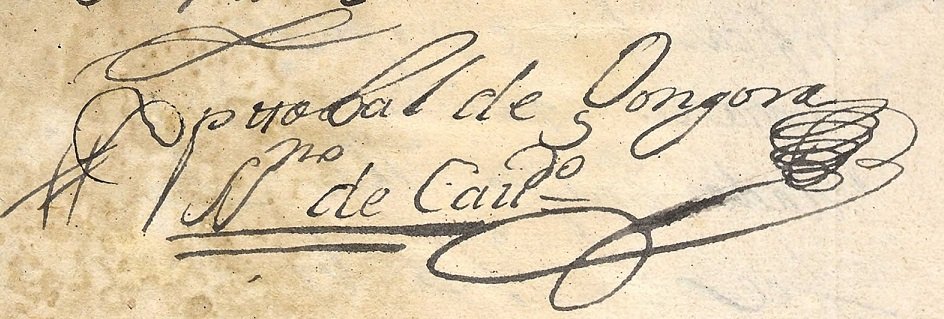 Xptobal de Gongora
SSno de Caudo